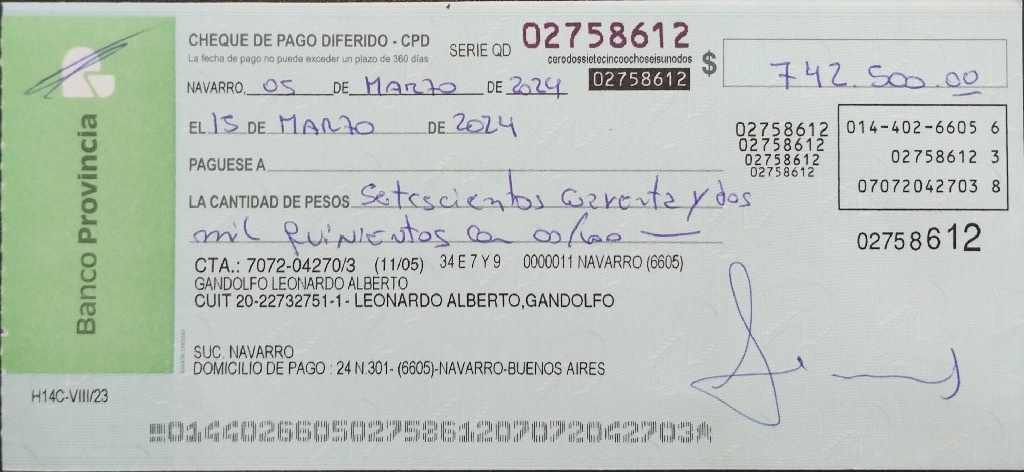 Banco Provincia
CHEQUE DE PAGO DIFERIDO - CPD
La fecha de pago no puede exceder un plazo de 360 días
SERIE QD 02758612
cerodossietecincoochoseisunodos
02758612
$ 742.500.00
NAVARRO, 05 DE MARZO DE 2024
EL 15 DE MARZO DE 2024
PAGUESE A
LA CANTIDAD DE PESOS Setescientos cuarenta y dos
mil quinientos con 00/100
02758612
02758612
02758612
02758612
014-402-6605 6
02758612 3
07072042703 8
02758612
CTA.: 7072-04270/3 (11/05) 34 E 7 Y 9 0000011 NAVARRO (6605)
GANDOLFO LEONARDO ALBERTO
CUIT 20-22732751-1- LEONARDO ALBERTO,GANDOLFO
SUC. NAVARRO
DOMICILIO DE PAGO : 24 N.301- (6605)-NAVARRO-BUENOS AIRES
H14C-VIII/23
01440266050275861207072042703